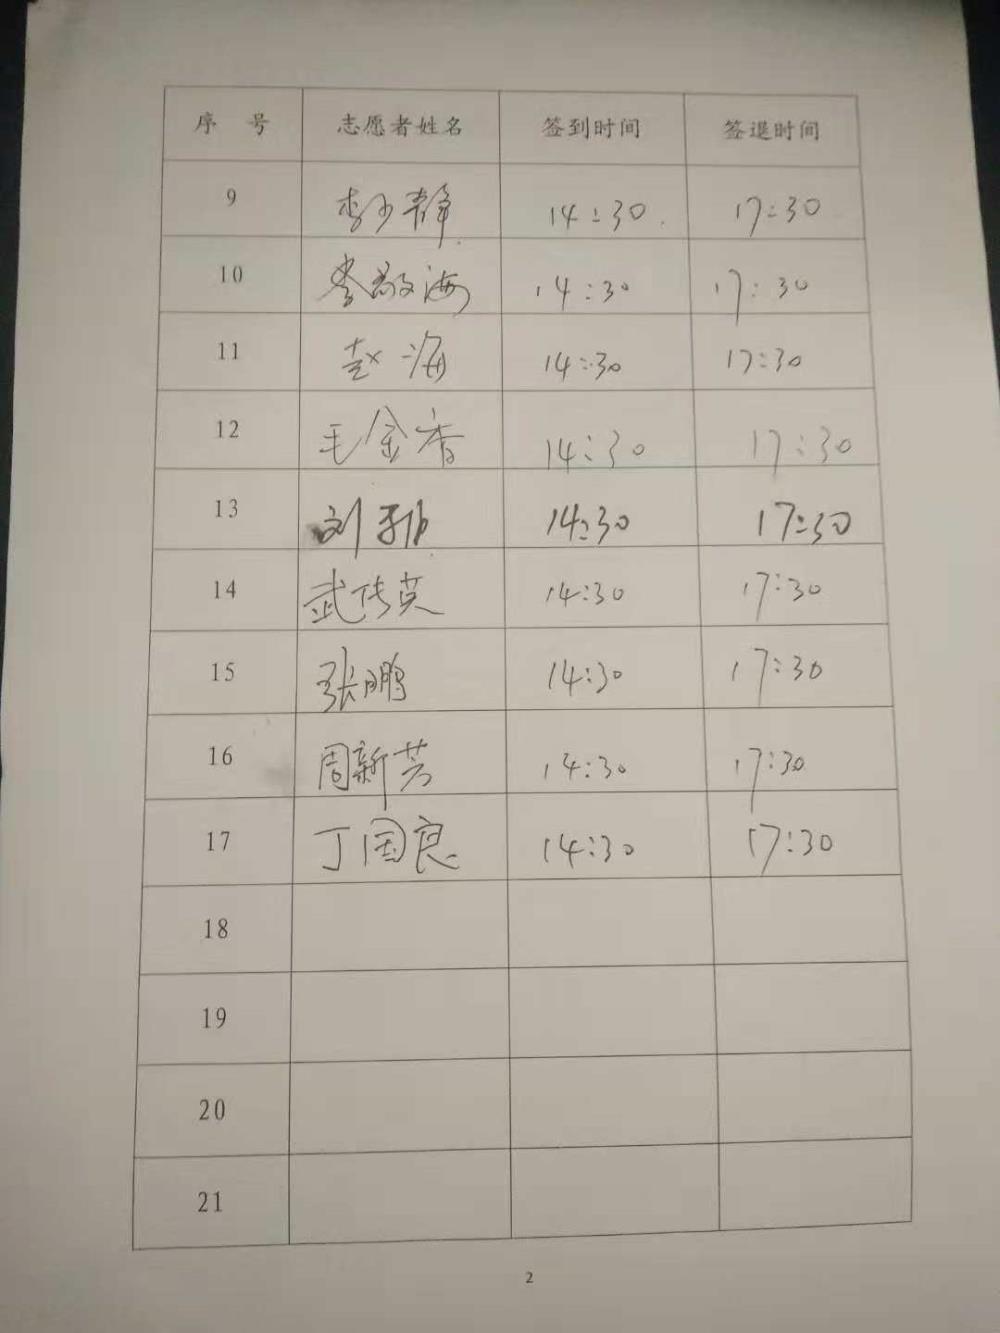 序 号 志愿者姓名 签到时间 签退时间
9 李少静 14:30 17:30
10 李敬海 14:30 17:30
11 赵海 14:30 17:30
12 毛金香 14:30 17:30
13 刘 14:30 17:30
14 武传英 14:30 17:30
15 张鹏 14:30 17:30
16 周新芳 14:30 17:30
17 丁国良 14:30 17:30
18
19
20
21
2